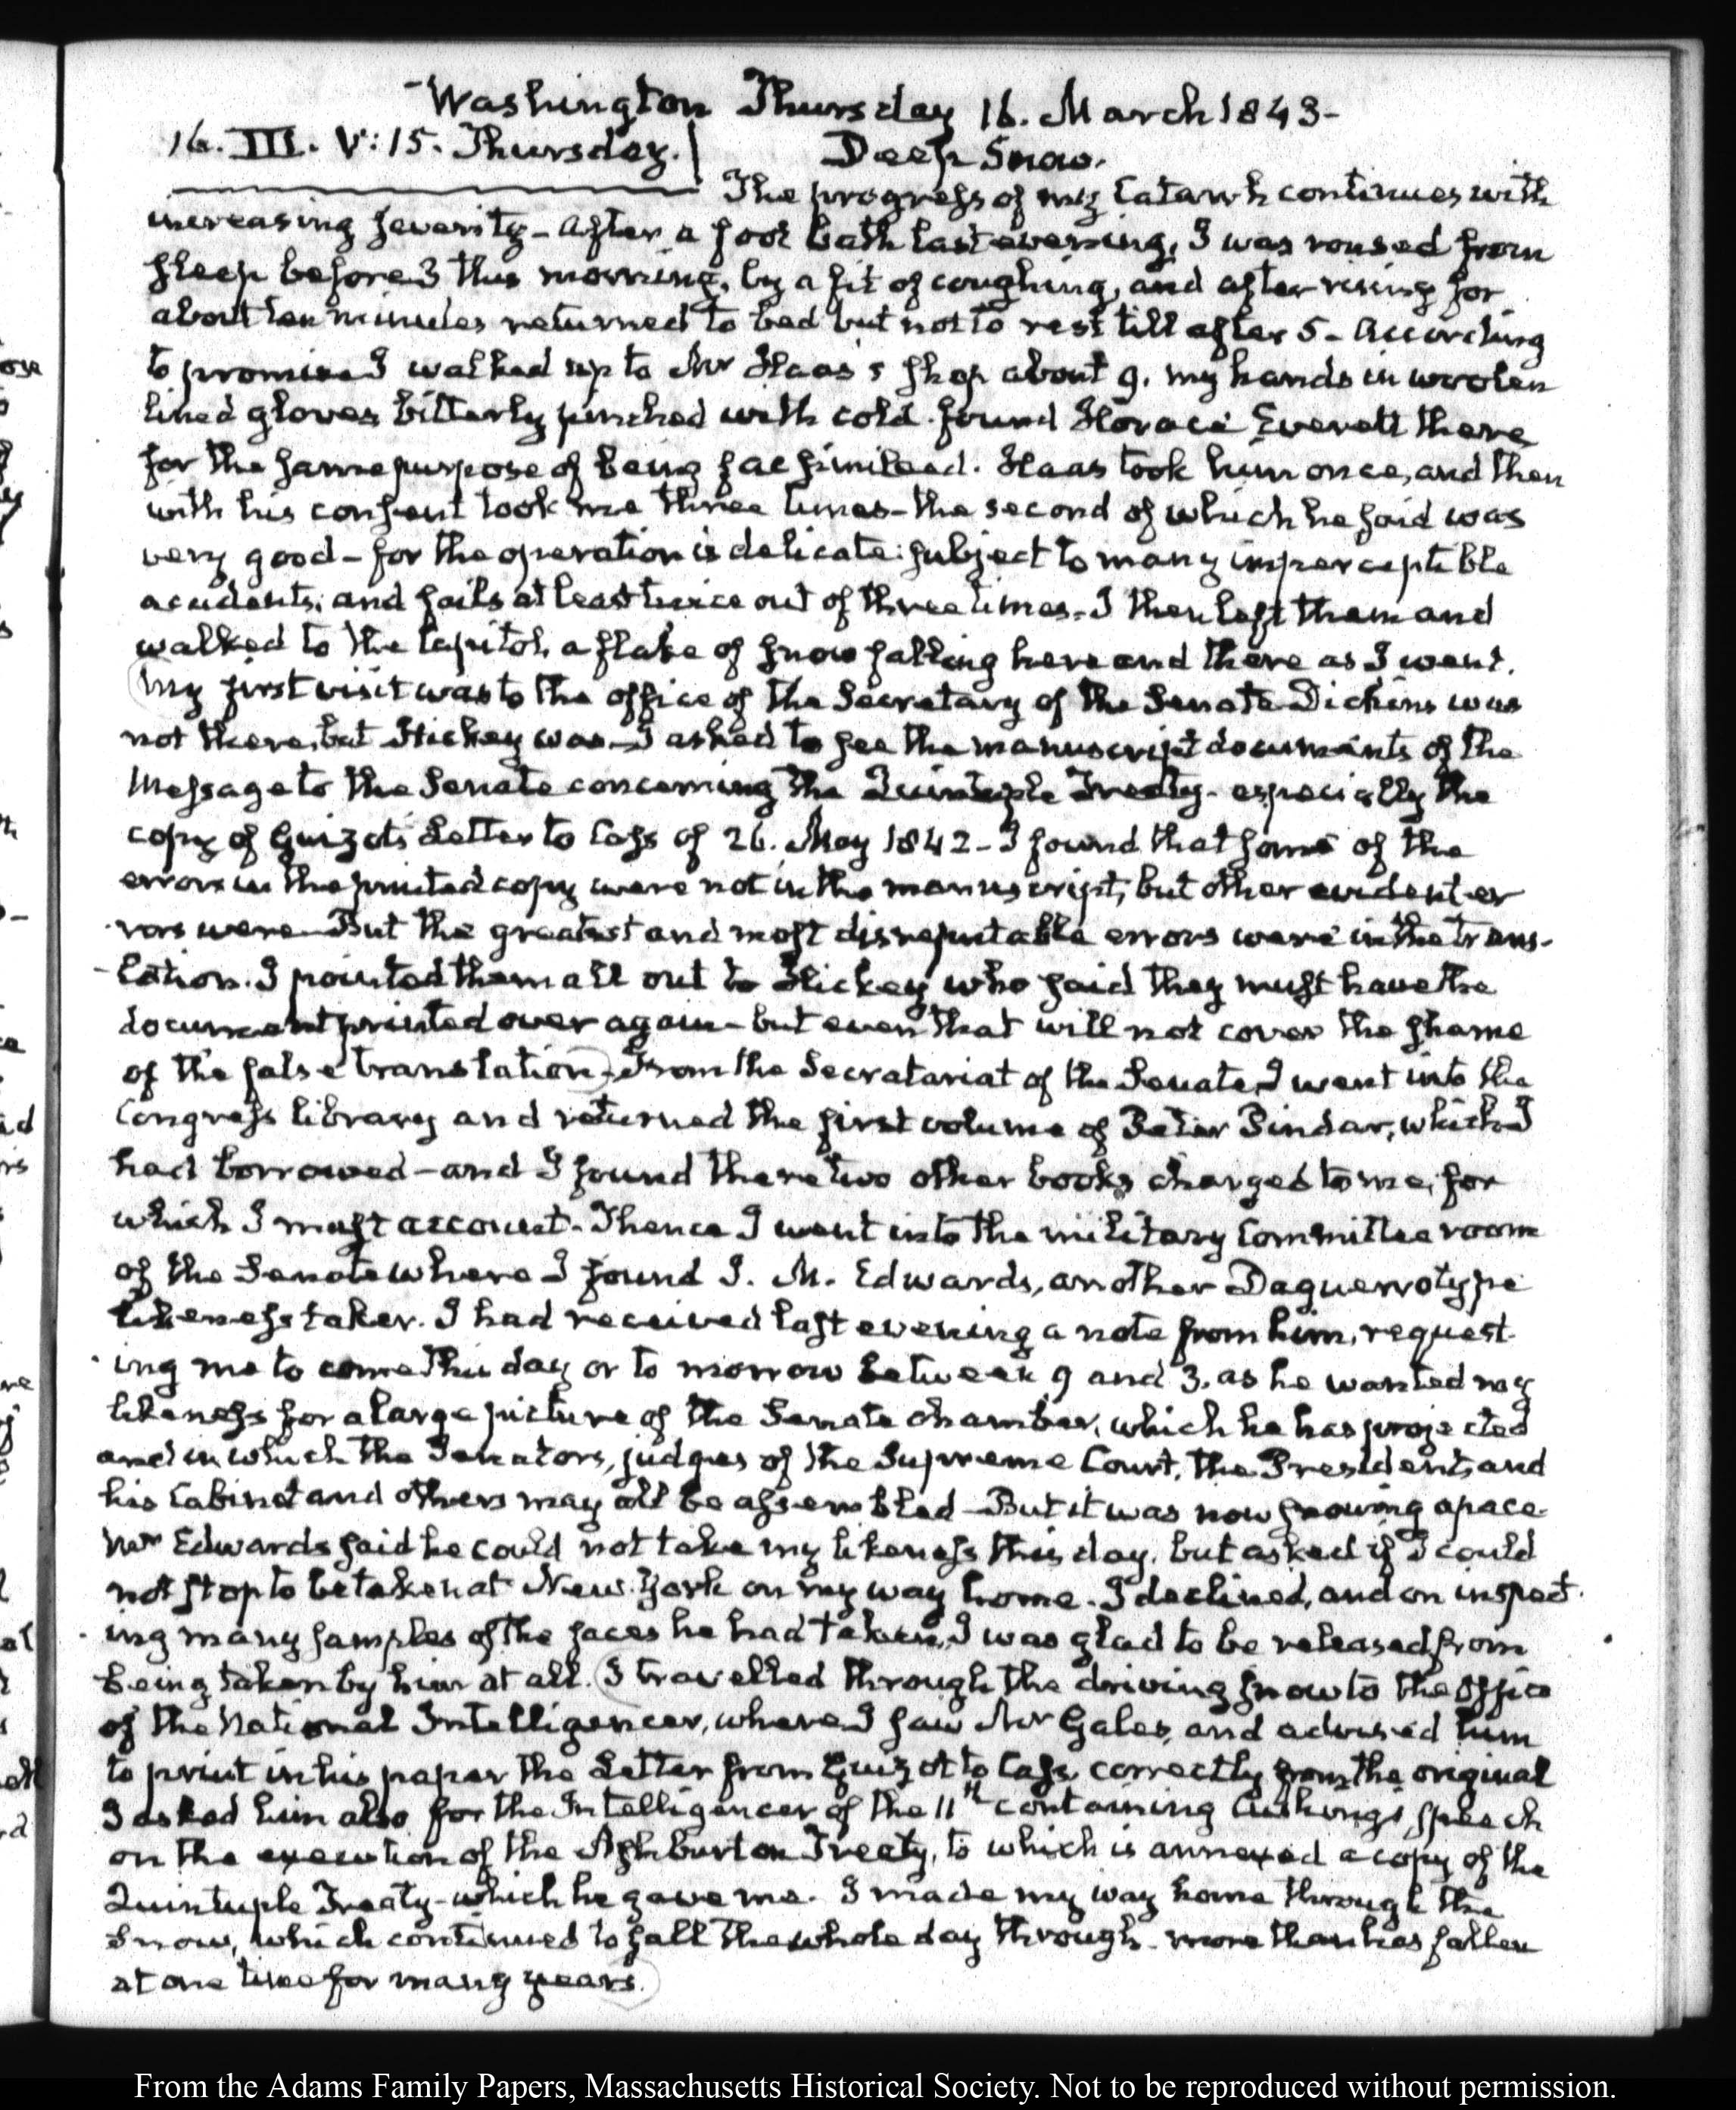 Washington Thursday 16. March 1843-
16. III. V:15. Thursday. Deep Snow.
The progress of my Catarrh continues with
increasing severity - After a foot bath last evening, I was roused from
sleep before 3 this morning, by a fit of coughing, and after rising for
about ten minutes returned to bed but not to rest till after 5 - According
to promise I walked up to Mr Haas's shop about 9. my hands in woolen
lined gloves bitterly pinched with cold. found Horace Everett there
for the same purpose of being facsimilead. Haas took him once, and then
with his consent took me three times - the second of which he said was
very good - for the operation is delicate: subject to many imperceptible
accidents, and fails at least twice out of three times - I then left them and
walked to the Capitol, a flake of snow falling here and there as I went.
My first visit was to the office of the Secretary of the Senate Dickins was
not there, but Hickey was - I asked to see the manuscript documents of the
Message to the Senate concerning the Quintuple Treaty - especially the
copy of Guizot's Letter to Cass of 26. May 1842 - I found that some of the
errors in the printed copy were not in the manuscript, but other evident er
rors were - But the greatest and most disreputable errors were in the trans-
-lation. I pointed them all out to Hickey who said they must have the
document printed over again - but even that will not cover the shame
of the false translation - From the Secretariat of the Senate I went into the
Congress library and returned the first volume of Peter Pindar, which I
had borrowed - and I found there two other books charged to me, for
which I must account - Thence I went into the military Committee room
of the Senate where I found J. M. Edwards, another Daguerrotype
likeness taker. I had received last evening a note from him, request-
ing me to come this day or to morrow between 9 and 3. as he wanted my
likeness for a large picture of the Senate chamber, which he has projected
and in which the Senators, judges of the Supreme Court, the President, and
his Cabinet and others may all be assembled - But it was now snowing apace.
Mr Edwards said he could not take my likeness this day, but asked if I could
not stop to be taken at New York on my way home. I declined, and on inspect-
-ing many samples of the faces he had taken, I was glad to be released from
being taken by him at all. I travelled through the driving snow to the office
of the National Intelligencer, where I saw Mr Gales, and advised him
to print in his paper the Letter from Guizot to Cass, correctly from the original
I asked him also for the Intelligencer of the 11th containing Cushing's speech
on the execution of the Ashburton Treaty, to which is annexed a copy of the
Quintuple Treaty - which he gave me. I made my way home through the
snow, which continued to fall the whole day through - more than has fallen
at one time for many years.
From the Adams Family Papers, Massachusetts Historical Society. Not to be reproduced without permission.